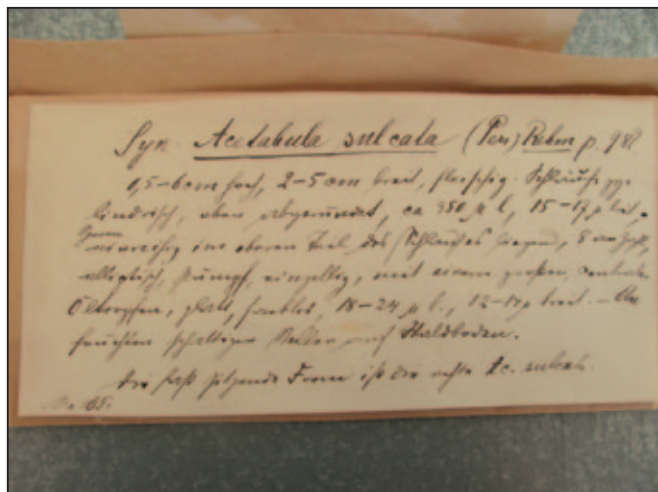 Syn. Acetabula sulcata (Pers) Rehm p. 982
1,5-6cm hoch, 2-5 cm breit, fleischig. Schläuche zy-
lindrisch, oben abgerundet, ca 350 µ l, 15-17 µ breit.
Sporen
einreihig im oberen Teil des Schlauches liegend, 8 an Zahl,
elliptisch, stumpf, einzellig, mit einem großen, centralen
Öltropfen, glatt, farblos, 18-24 µ l., 12-14 µ breit. - An
feuchten schattigen Stellen auf Waldboden.
Die fast sitzende Form ist die echte Ac. sulcata.